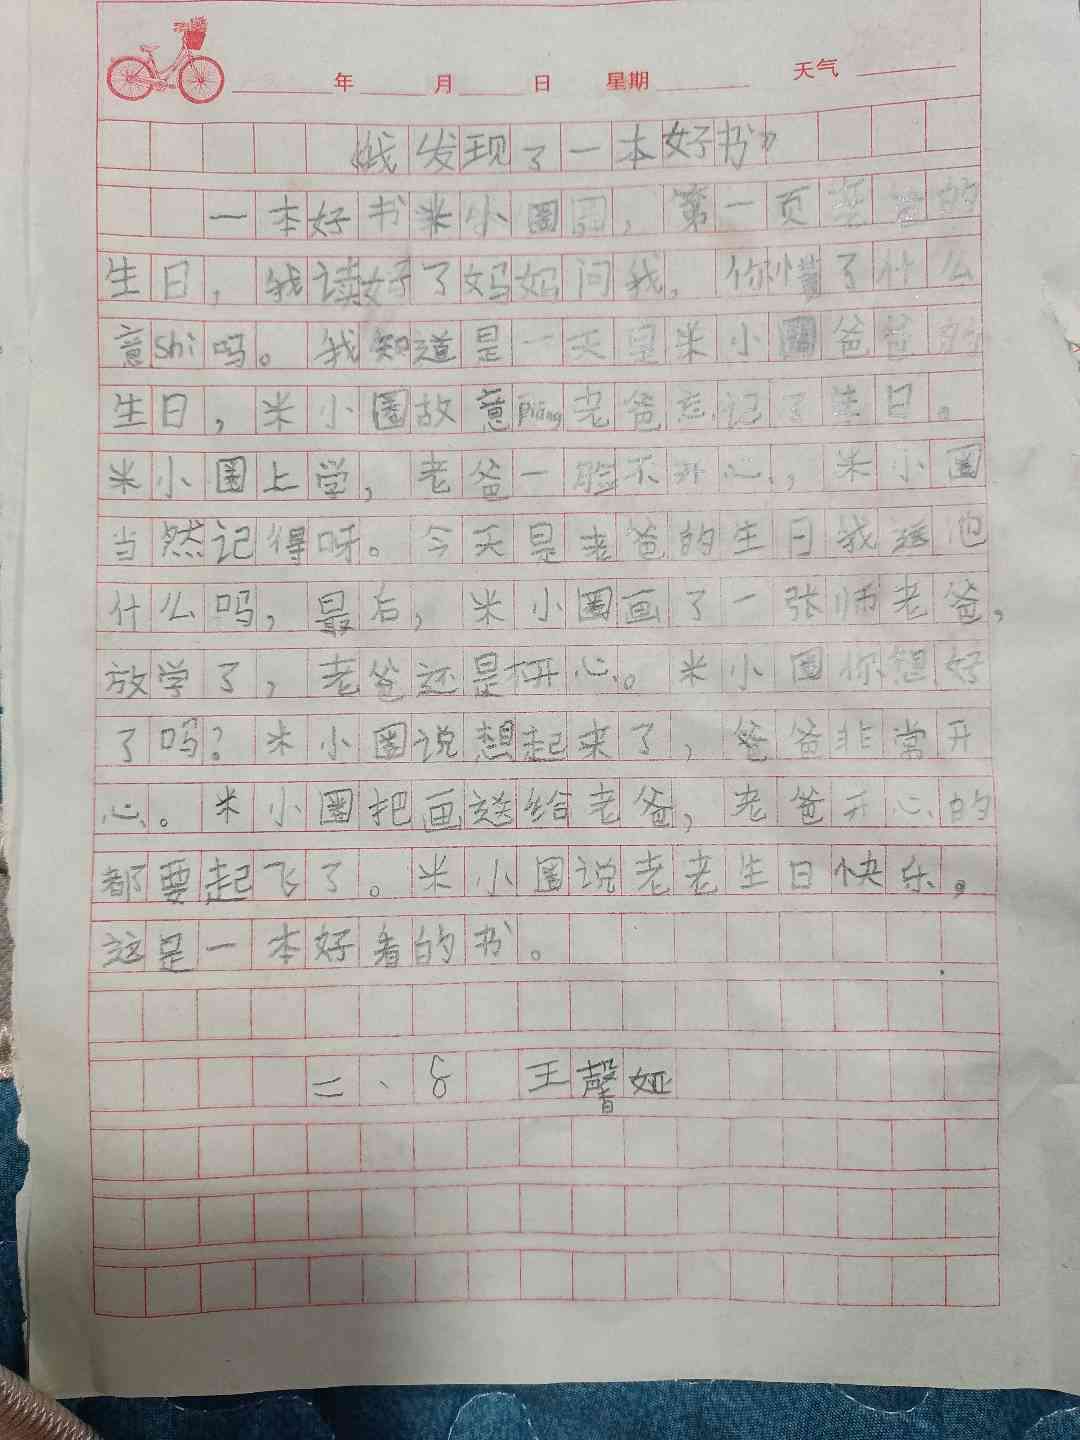 年 月 日 星期 天气
《我发现了一本好书》
一本好书米小圈, 第一页老爸的
生日, 我读好了妈妈问我, 你懂了什么
意shi吗。 我知道是一天是米小圈爸爸的
生日, 米小圈故意piāng老爸忘记了生日。
米小圈上学, 老爸一脸不开心, 米小圈
当然记得呀。今天是老爸的生日我送他
什么吗, 最后, 米小圈画了一张师老爸,
放学了, 老爸还是不开心。米小圈你想好
了吗? 米小圈说想起来了, 爸爸非常开
心。米小圈把画送给老爸, 老爸开心的
都要起飞了。米小圈说老老生日快乐。
这是一本好看的书。
二、8 王馨娅